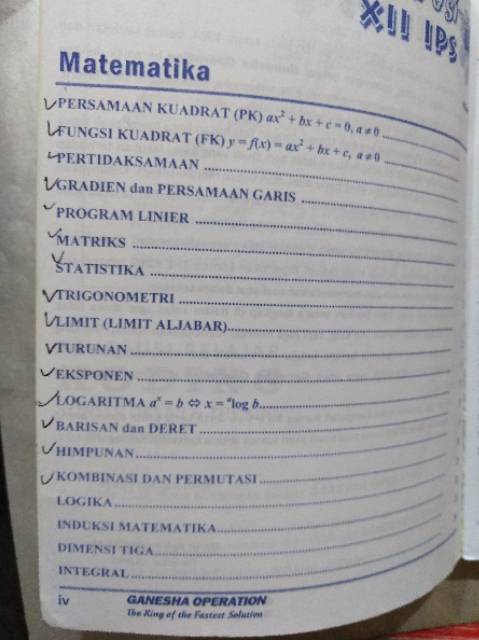 XII IPS
Matematika
PERSAMAAN KUADRAT (PK) ax² + bx + c = 0, a ≠ 0
FUNGSI KUADRAT (FK) y = f(x) = ax² + bx + c, a ≠ 0
PERTIDAKSAMAAN
GRADIEN dan PERSAMAAN GARIS
PROGRAM LINIER
MATRIKS
STATISTIKA
TRIGONOMETRI
LIMIT (LIMIT ALJABAR)
TURUNAN
EKSPONEN
LOGARITMA aˣ = b ⇔ x = ᵃlog b
BARISAN dan DERET
HIMPUNAN
KOMBINASI DAN PERMUTASI
LOGIKA
INDUKSI MATEMATIKA
DIMENSI TIGA
INTEGRAL
iv
GANESHA OPERATION
The King of the Fastest Solution